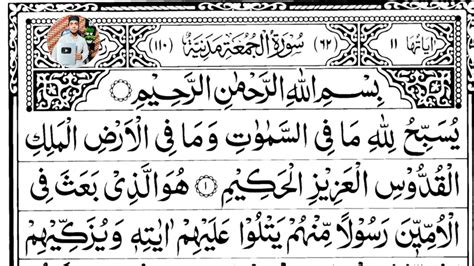 اٰيَاتُهَا ١١ (٦٢) سُوْرَةُ الْجُمُعَةِ مَدَنِيَّةٌ (١١٠)
بِسْمِ اللهِ الرَّحْمٰنِ الرَّحِيْمِ
يُسَبِّحُ لِلّٰهِ مَا فِى السَّمٰوٰتِ وَمَا فِى الْاَرْضِ الْمَلِكِ
الْقُدُّوْسِ الْعَزِيْزِ الْحَكِيْمِ ١ هُوَ الَّذِىْ بَعَثَ فِى
الْاُمِّيّٖنَ رَسُوْلًا مِّنْهُمْ يَتْلُوْا عَلَيْهِمْ اٰيٰتِهٖ وَيُزَكِّيْهِمْ